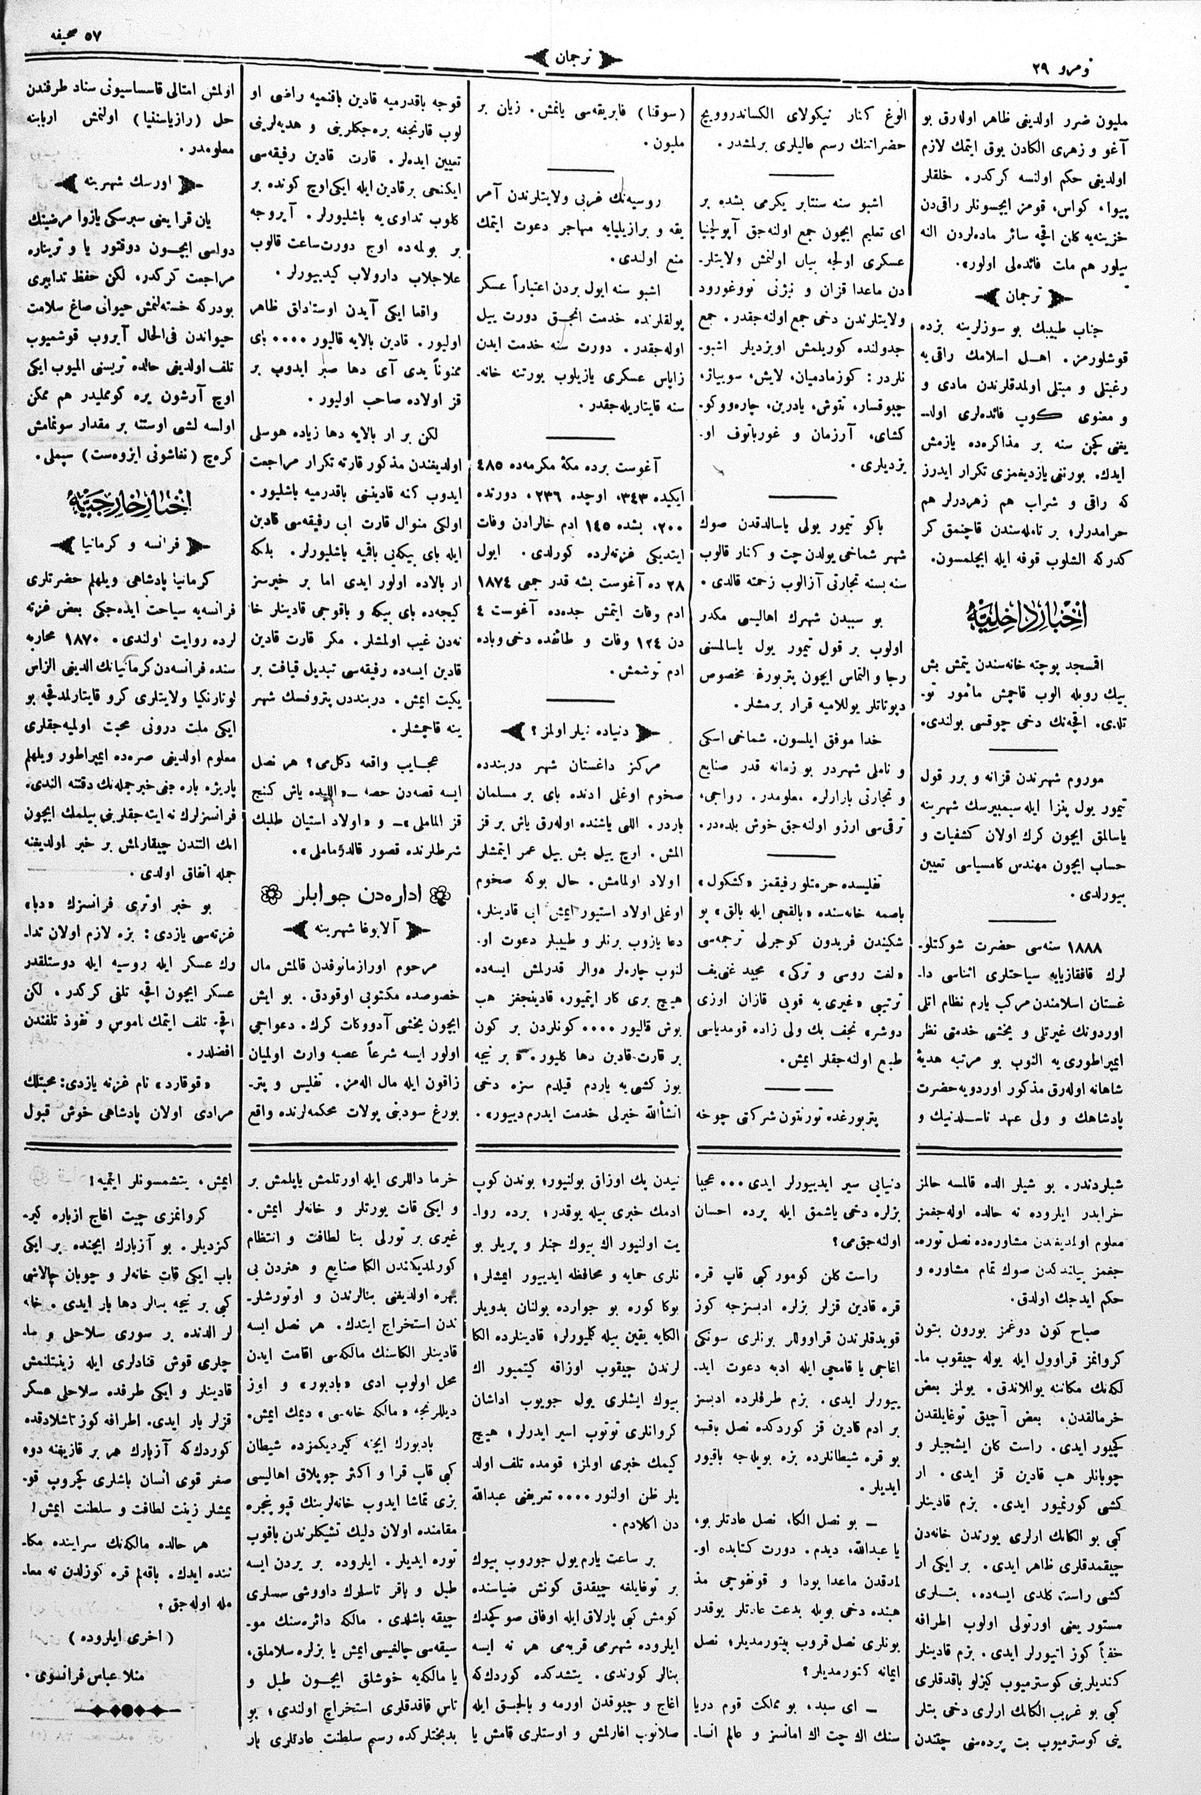 نومرو ٢٩
ترجمان
٥٧ صحیفه
ملیون ضرر اولدیغی ظاهر اوله‌رق بو
آغو و زهری الكادن یوق ایتمك لازم
اولدیغی حكم اولنسه كركدر. خلقلر
پیوا، كواس، قومز ایچسونلر راقی‌دن
خزینه‌یه كلن اقچه سائر ماده‌لردن النه
بیلور هم مات فائده‌لی اولور».
ترجمان
جناب طبیبك بو سوزلرینه بزده
قوشلورمز. اهل اسلامك راقی‌یه
رغبتلی و مبتلی اولمدقلرندن مادی و
و معنوی كوپ فائده‌لری اولد-
یغنی كچن سنه بر مذاكره‌ده یازمش
ایدك. بورنغی یازدیغمزی تكرار ایدرز
كه راقی و شراب هم زهردرلر هم
حرامدرلر؛ بر نامله‌سندن قاچنمق كر
كدركه الشلوب قوفه ایله ایچلمسون.
اخبار داخلیه
اقمسجد پوچته خانه‌سندن یتمش بش
بیك روبله الوب قاچمش مأمور تو-
تلدی. اقچه‌نك دخی چوقسی بولندی.
موروم شهرندن قزانه و برر قول
تیمور یول پنزا ایله سیمبیرسك شهرینه
یاسالمق ایچون كرك اولان كشفیات و
حساب ایچون مهندس كامسیاسی تعیین
بیورلدی.
١٨٨٨ سنه‌سی حضرت شوكتلو-
لرك قافقازیایه سیاحتلری اثناسی دا-
غستان اسلامندن مركب یارم نظام اتلی
اوردونك غیرتلی و یخشی خدمتی نظر
ایمپراطوری یه النوب بو مرتبه هدیهٔ
شاهانه اوله‌رق مذكور اوردویه حضرت
پادشاهك و ولی عهد ناسلدنیك و
الوغ كناز نیكولای الكساندروویچ
حضراتنك رسم عالیلری برلمشدر.
اشبو سنه سنتابر یكرمی بشده بر
ای تعلیم ایچون جمع اوله‌جق آپولچنیا
عسكری اولجه بیان اولنمش ولایتلر-
دن ماعدا قزان و نیژنی نووغورود
ولایتلرندن دخی جمع اوله‌جقدر. جمع
جدولنده كوریلمش اویزدیلر اشبو-
نلردر: كوزمادمیان، لایش، سوییاز،
چبوقسار، تتوش، یادرین، چاره‌ووكو-
كشای، آرزمان و غورباتوف او-
یزدیلری.
باكو تیمور یولی یاسالدقدن صوك
شهر شماخی یولدن چت و كنار قالوب
سنه بسنه تجارتی آزالوب زحمته قالدی.
بو سببدن شهرك اهالیسی مكدر
اولوب بر قول تیمور یول یاسالمسنی
رجا و التماس ایچون پتربورغه مخصوص
دیوتاتلر یوللامیه قرار برمشلر.
خدا موفق ایلسون. شماخی اسكی
و ناملی شهردر بو زمانه قدر صنایع
و تجارتی بارارلره معلومدر. رواجی،
ترقی‌سی ارزو اوله‌جق خوش بلده‌در.
تفلیسده حرمتلو رفیقمز «كشكول»
باصمه خانه‌سنده «بالقچی ایله بالق» بو
شكیندن فریدون كوچرلی ترجمه‌سی
«لغت روسی و تركی» مجید غنی‌یف
ترتیبی «غیری یه قویی قازان اوزی
دوشر» نجف بك ولی زاده قومدیاسی
طبع اوله‌جقلر ایمش.
پتربورغده تورنتون شركتی چوخه
(سوقنا) فابریقه‌سی یانمش. زیان بر
ملیون.
روسیه‌نك غربی ولایتلرندن آمر
یقه و برازیلیایه مهاجر دعوت ایتمك
منع اولندی.
اشبو سنه ایول بردن اعتباراً عسكر
پولقلرنده خدمت انجق دورت ییل
اوله‌جقدر. دورت سنه خدمت ایدن
زاپاس عسكری یازیلوب یورتنه خانه-
سنه قایتاریله‌جقدر.
آغوست برده مكهٔ مكرمه‌ده ٤٨٥
ایكیده ٣٤٣، اوچده ٢٣٦، دورتده
٢٠٠، بشده ١٤٥ ادم خالرادن وفات
ایتدیكی غزته‌لرده كورلدی. ایول
٢٨ ده آغوست بشه قدر جمعی ١٨٧٤
ادم وفات ایتمش جده‌ده آغوست ٤
دن ١٢٤ وفات و طائفده دخی وباده
ادم توشمش.
دنیاده نیلر اولمز؟
مركز داغستان شهر دربندده
صخوم اوغلی ادنده بای بر مسلمان
باردر. اللی یاشنده اوله‌رق یاش بر قز
المش. اوچ ییل بش ییل عمر ایتمشلر
اولاد اولمامش. حال بوكه صخوم
اوغلی اولاد استیور ایمش ابی قادینلر،
دعا یازوب برنلر و طبیبلر دعوت او-
لنوب چاره‌لر دوالر قدرلمش ایسه‌ده
هیچ بری كار ایتمیور، قادینجغز هب
بوش قالیور .... كونلردن بر كون
بر قارت-قادین دها كلیور. «بر نیچه
یوز كشی‌یه یاردم قیلدم سزه دخی
انشاءالله خیرلی خدمت ایدرم دیبور».
قوجه باقدرمیه قادین باقنمیه راضی او
لوب قارتجغه بره‌جكلرینی و هدیه‌لرینی
تعیین ایده‌لر. قارت قادین رفیقه‌سی
ایكنجی برقادین ایله ایكی‌اوچ كونده بر
كلوب تداوی یه باشلیورلر. آیروجه
بر بولمه‌ده اوچ دورت ساعت قالوب
علاجلاب دارولاب كیدیبورلر.
واقعا ایكی آیدن اوستداق ظاهر
اولیور. قادین بالایه قالیور .... بای
ممنوناً یدی آی دها صبر ایدوب بر
قز اولاده صاحب اولیور.
لكن بر ار بالایه دها زیاده هوسلی
اولدیغندن مذكور قارته تكرار مراجعت
ایدوب كنه قادیننی باقدرمیه باشلیور.
اولكی منوال قارت ابی رفیقه‌سی قادین
ایله بای بیكه‌یی باقیه باشلیورلر. بلكه
ار بالاده اولور ایدی اما بر خیرسز
كیجه‌ده بای بیكه و باقوجی قادینلر خا
نه‌دن غیب اولمشلر. مكر قارت قادین
قادین ایسه‌ده رفیقه‌سی تبدیل قیافت بر
یكیت ایمش. دربنددن پتروفسك شهر
ینه قاچمشلر.
عجایب واقعه دكلمی؟ هر نصل
ایسه قصه‌دن حصه – «اللیده یاش كنج
قز الماملی» – و «اولاد استیان طلبك
شرطلرنده قصور قالدرماملی».
اداره‌دن جوابلر
آلابوغا شهرینه
مرحوم اورازمانوفدن قالمش مال
خصوصده مكتوبی اوقودق. بو ایش
ایچون یخشی آدووكات كرك. دعواجی
اولور ایسه شرعاً عصبه وارث اولمیان
زاقون ایله مال اله‌مز. تفلیس و پتر-
بورغ سودنی پولات محكمه‌لرنده واقع
اولمش امثالی قاسساسیونی سناد طرفندن
حل (رازیاسنفیا) اولنمش اربابنه
معلومدر.
اورسك شهرینه
یان قرا یعنی سیبرسكی یازوا مرضینك
دواسی ایچون دوقتور یا و تریناره
مراجعت كركدر، لكن حفظ تدابیری
بودركه خسته‌لنمش حیوانی صاغ سلامت
حیواندن فی‌الحال آیروب قوشمیوب
تلف اولدیغی حالده تریسنی المیوب ایكی
اوچ آرشون یره كوملیدر هم ممكن
اولسه لشی اوستنه بر مقدار سونمامش
كرچ (نغاشونی ایزوه‌ست) سپملی.
اخبار خارجیه
فرانسه و كرمانیا
كرمانیا پادشاهی ویلهلم حضرتلری
فرانسه‌یه سیاحت ایده‌جكی بعض غزته
لرده روایت اولندی. ١٨٧٠ محاربه
سنده فرانسه‌دن كرمانیانك الدیغی الزاس
لوتارنكیا ولایتلری كرو قایتارلمدقچه بو
ایكی ملت درونی محبت اولمیه‌جقلری
معلوم اولدیغی صره‌ده ایمپراطور ویلهلم
پاریژه باره جغی خبر جمله‌نك دقتنه النده،
فرانسزلرك نه ایته‌جقلرینی بیلمك ایچون
امك التندن چیقارلمش بر خبر اولدیغنه
جمله اتفاق اولدی.
بو خبر اوتری فرانسزك «دبا»
غزته‌سی یازدی: بزه لازم اولان تدا-
رك عسكر ایله روسیه ایله دوستلقدر
عسكر ایچون اقچه تلفی كركدر. لكن
اقچه تلف ایتمك ناموس و نفوذ تلفندن
افضلدر.
«قوقارد» نام غزته یازدی: محبتلك
مرادی اولان پادشاهی خوش قبول
شیلردندر. بو شیلر الده قالمسه حالمز
خرابدر ایلروده نه حالده اوله‌جغمز
معلوم اولمدیغندن مشاوره‌ده نصل توره-
جغمز بیانندن صوك تمام مشاوره و
حكم ایده‌جك اولدق.
صباح كون دوغمز بورون بتون
كروانمز قراوول ایله یوله چیقوب ما-
لكه‌نك مكاننه یوللاندق. یولمز بعض
خرمالقدن، بعض آچیق توغایلقدن
كچیور ایدی. راست كلن ایشجیلر و
چوبانلر هب قادین قز ایدی. ار
كشی كورنمیور ایدی. بزم قادینلر
كبی بو الكانك ارلری یورتندن خانه‌دن
چیقمدقلری ظاهر ایدی. بر ایكی ار
كشی راست كلدی ایسه‌ده، بتلری
مستور یعنی اورتولی اولوب اطرافه
خفیاً كوز اتیورلر ایدی. بزم قادینلر
كندیلرینی كوسترمیوب كیزلو باقدقلری
كبی بو غریب الكانك ارلری دخی بتلر
ینی كوسترمیوب بت پرده‌سنی چقندن
دنیایی سیر ایدیبورلر ایدی ... عجبا
بزلره دخی یاشمق ایله پرده احسان
اولنه جق‌می؟
راست كلن كومور كبی قاپ قره
قره قادین قزلر بزلره ادبسزجه كوز
قویدقلرندن قراووللر بونلری سونكی
اغاجی یا قامچی ایله ادبه دعوت اید-
یبورلر ایدی. بزم طرفلرده ادبسز
بر ادم قادین قز كوردكده نصل باقسه
بو قره شیطانلرده بزه بویله‌جه باقیور
ایدیلر.
– بو نصل الكا، نصل عادتلر بو،
یا عبدالله، دیدم. دورت كتابده او-
لمدقدن ماعدا بودا و قونفوچی مذ
هبنده دخی بویله بدعت عادتلر یوقدر
بونلری نصل قروب بیتورمدیلر؛ نصل
ایمانه كتورمدیلر؟
– ای سید، بو مملكت قوم دریا
سنك اك چت اك امانسز و عالم انسا-
نیدن پك اوزاق بولنیور؛ بوندن كوپ
ادمك خبری بیله یوقدر؛ برده روا-
یت اولنیور اك بیوك جنلر و پریلر بو
نلری حمایه و محافظه ایدیبور ایمشلر؛
بوكا كوره بو جوارده بولنان بدویلر
الكایه یقین بیله كلمیورلر؛ قادینلرده الكا
لرندن چیقوب اوزاقه كیتمیور اك
بیوك ایشلری یول جویوب اداشان
كروانلری توتوب اسیر ایدرلر؛ هیچ
كیمك خبری اولمز؛ قومده تلف اولد
یلر ظن اولنور .... تعریفنی عبدالله
دن اكلادم.
بر ساعت یارم یول جوروب بیوك
بر توغایلغه چیقدق كونش ضیاسنده
كومش كبی پارلاق ایله اوفاق صو كچدك
ایلروده شهرمی قریه‌می هر نه ایسه
بنالر كورندی. یتشدكده كوردك‌كه
اغاج و چبوقدن اورمه و بالچق ایله
صلانوب اغارلمش و اوستلری قامش یا
خرما داللری ایله اورتلمش یاپلمش بر
و ایكی قات یورتلر و خانه‌لر ایمش.
غیری بر تورلی بنا لطافت و انتظام
كورلمدیكندن الكا صنایع و هنردن بی
بهره اولدیغنی بنالرندن و اوتورشلر-
ندن استخراج ایتدك. هر نصل ایسه
قادینلر الكاسنك مالكه‌سی اقامت ایدن
محل اولوب ادی «بادبور» و اوز
دیللرنجه «مالكه خانه‌سی» دیمك ایمش.
بادبورك ایچنه كیردیكمزده شیطان
كبی قاپ قرا و اكثر جوپلاق اهالیسی
بزی تماشا ایدوب خانه‌لرینك قپو پنجره
مقامنده اولان دلیك تشیكلرندن باقوب
توره ایدیلر. ایلروده بر بردن ایسه
طبل و پاقر تاسلرك داووشی سسلری
چیقه باشلدی. مالكه دائره‌سنك مو-
سیقه‌سی چالغیسی ایمش یا بزلره سلاملق،
یا مالكه‌یه خوشلق ایچون طبل و
تاس قاقدقلری استخراج اولندی؛ بو
بدبختلركده رسم سلطنت عادتلری بار
ایمش. یتشمسونلر ایتمیه!
كروانمزی چیت اغاج ازباره كیر-
كزدیلر. بو آزبارك ایچنده بر ایكی
باب ایكی قات خانه‌لر و چوبان چالاشی
كبی بر نیچه بنالر دها بار ایدی. خانه
لر الدنده بر سوری سلاحلی و ما-
چلری قوش قنادلری ایله زینتلنمش
قادینلر و ایكی طرفده سلاحلی عسكر
قزلر بار ایدی. اطرافه كوز تاشلادقده
كوردك‌كه آزبارك هر بر قازیغنه دوه
صغر قوی انسان باشلری كچروب قو-
یمشلر زینت لطافت و سلطنت ایمش!
هر حالده مالكه‌نك سراینده مكا-
ننده ایدك. باقه‌لم قره كوزلدن نه معا-
مله اوله‌جق.
(اخری ایلروده)
منلا عباس فرانسوی.